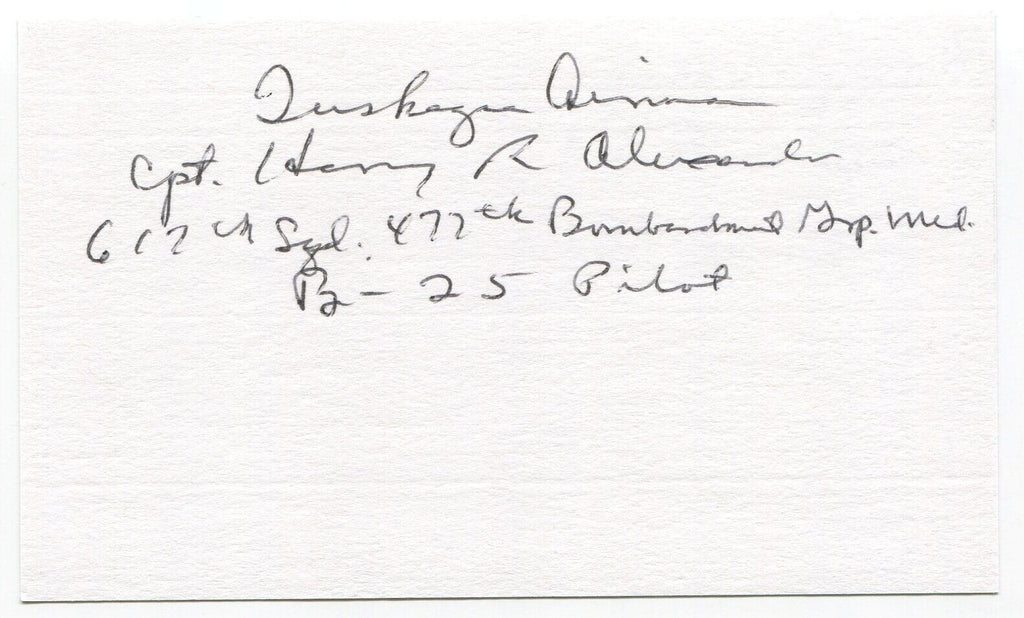 Tuskegee Airman
Cpt. Harry R Alexander
617th Sqd. 477th Bombardment Grp. Med.
B-25 Pilot